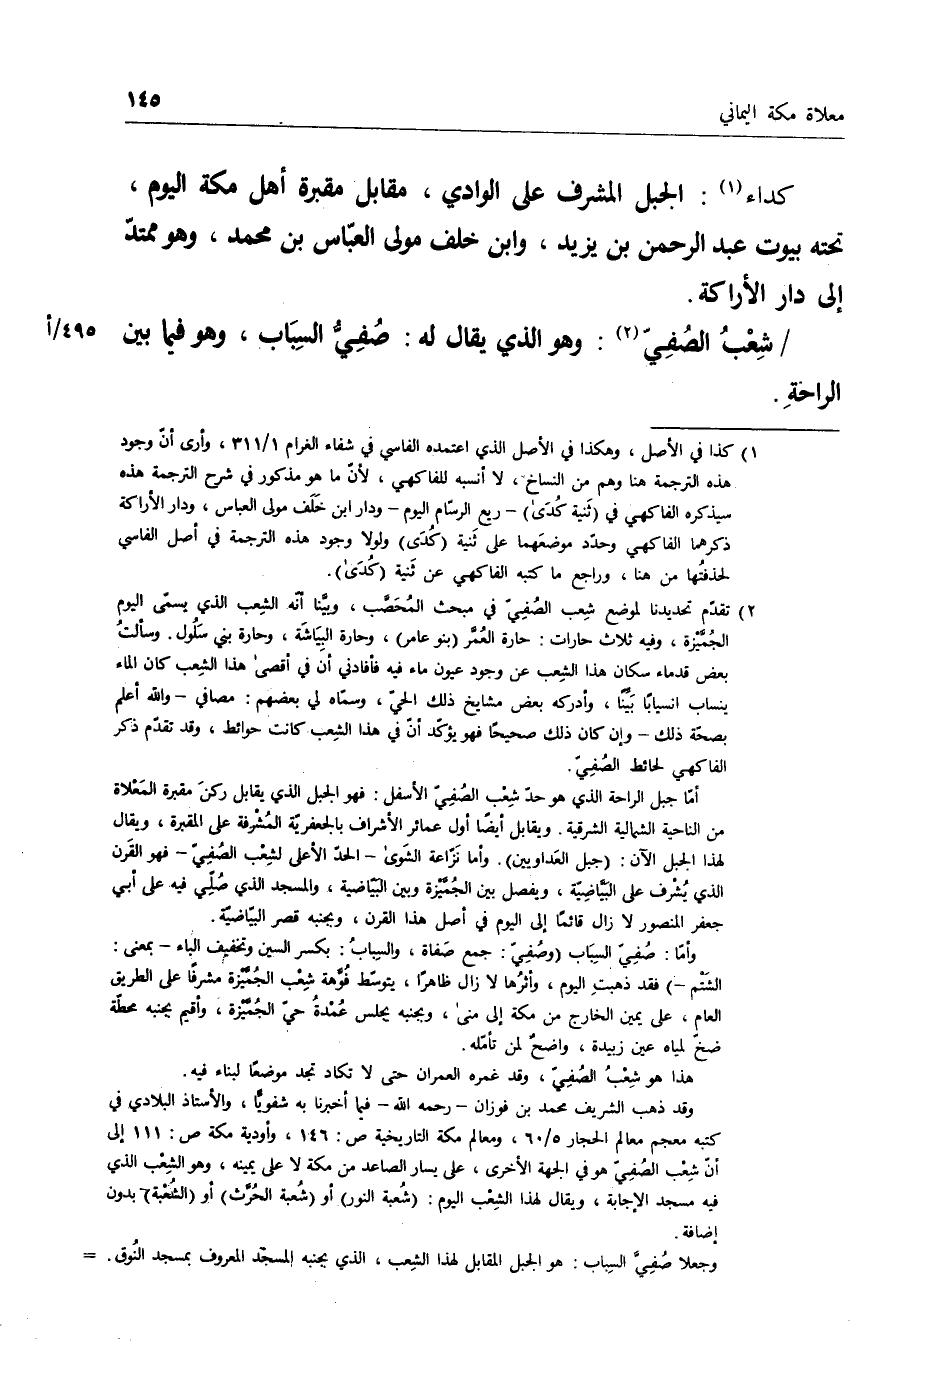 معلاة مكة اليماني
١٤٥
كداء(١) : الجبل المشرف على الوادي ، مقابل مقبرة أهل مكة اليوم ،
تحته بيوت عبد الرحمن بن يزيد ، وابن خلف مولى العبّاس بن محمد ، وهو ممتدّ
إلى دار الأراكة .
/ شِعْبُ الصُفِيّ(٢) : وهو الذي يقال له : صُفِيُّ السِبَاب ، وهو فيما بين ٤٩٥/أ
الراحَةِ .
١) كذا في الأصل ، وهكذا في الأصل الذي اعتمده الفاسي في شفاء الغرام ٣١١/١ ، وأرى أنّ وجود
هذه الترجمة هنا وهم من النساخ ، لا أنسبه للفاكهي ، لأنّ ما هو مذكور في شرح الترجمة هذه
سيذكره الفاكهي في (ثَنية كُدَىٰ) – ريع الرسّام اليوم – ودار ابن خَلَف مولى العباس ، ودار الأراكة
ذكرهما الفاكهي وحدّد موضعَهما على ثَنية (كُدَى) ولولا وجود هذه الترجمة في أصل الفاسي
لحذفتُها من هنا ، وراجع ما كتبه الفاكهي عن ثَنية (كُدَىٰ).
٢) تقدّم تحديدنا لموضع شِعب الصُفِيّ في مبحث المُحَصَّب ، وبيَّنا أنّه الشِعب الذي يسمّى اليوم
الجُمَّيْزة ، وفيه ثلاث حارات : حارة العُمَّر (بنو عامر) ، وحارة البِيَاشَة ، وحارة بني سَلُول . وسألتُ
بعض قدماء سكان هذا الشِعب عن وجود عيون ماء فيه فأفادني أن في أقصىٰ هذا الشِعب كان الماء
ينساب انسيابًا بَيِّنًا ، وأدركه بعض مشايخ ذلك الحيّ ، وسمّاه لي بعضهم : مصافي – والله أعلم
بصحّة ذلك – وإن كان ذلك صحيحًا فهو يؤكّد أنّ في هذا الشِعب كانت حوائط ، وقد تقدّم ذكر
الفاكهي لحائط الصُفِيّ .
أمّا جبل الراحة الذي هو حدّ شِعْب الصُفِيّ الأسفل : فهو الجبل الذي يقابل ركنَ مقبرة المَعْلاة
من الناحية الشمالية الشرقية . ويقابل أيضًا أول عمائر الأشراف بالجعفريّة المُشْرفة على المقبرة ، ويقال
لهذا الجبل الآن : (جبل العَداويين). وأما نَزّاعة الشَوىٰ – الحدّ الأعلى لشِعْب الصُفِيّ – فهو القَرن
الذي يُشْرف على البَيَّاضِيَّة ، ويفصل بين الجُمَّيْزة وبين البَيّاضية ، والمسجد الذي صُلّي فيه على أبي
جعفر المنصور لا زال قائمًا إلى اليوم في أصل هذا القرن ، وبجنبه قصر البَيّاضيّة .
وأمّا : صُفِيّ السِبَاب (وصُفِيّ : جمع صَفاة ، والسِبابُ : بكسر السين وتخفيف الباء – بمعنى :
الشَتْم –) فقد ذهبتِ اليوم ، وأثرُها لا زال ظاهرًا ، يتوسّط فُوَّهة شِعْب الجُمَّيْزة مشرفًا على الطريق
العام ، على يمين الخارج من مكة إلى منىٰ ، وبجنبه يجلس عُمْدةُ حيّ الجُمَّيْزة ، وأقيم بجنبه محطّة
ضخّ لمياه عين زبيدة ، واضحٌ لمن تأمّله.
هذا هو شِعْبُ الصُفِيّ ، وقد غمره العمران حتى لا تكاد تجد موضعًا لبناء فيه .
وقد ذهب الشريف محمد بن فوزان – رحمه الله – فيما أخبرنا به شفويًّا ، والأستاذ البلادي في
كتبه معجم معالم الحجار ٦٠/٥ ، ومعالم مكة التاريخية ص : ١٤٦ ، وأودية مكة ص : ١١١ إلى
أنّ شِعْب الصُفِيّ هو في الجهة الأخرى ، على يسار الصاعد من مكة لا على يمينه ، وهو الشِعْب الذي
فيه مسجد الإجابة ، ويقال لهذا الشِعْب اليوم : (شُعبة النور) أو (شُعبة الحُرَّث) أو (الشُعْبة) بدون
إضافة .
وجعلا صُفِيَّ السِباب : هو الجبل المقابل لهذا الشِعب ، الذي بجنبه المسجّد المعروف بمسجد النُوق . =